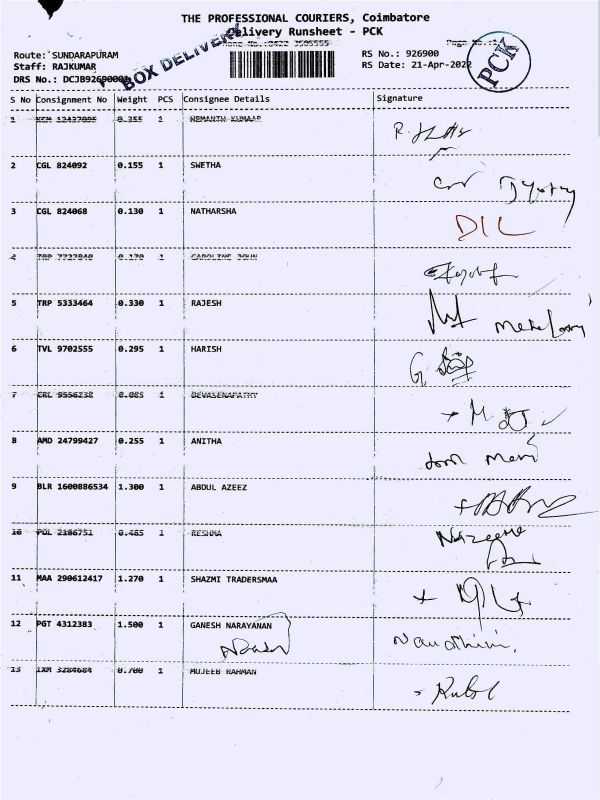 THE PROFESSIONAL COURIERS, Coimbatore
Delivery Runsheet - PCK
BOX DELIVERY
PCK
Route: SUNDARAPURAM
RS No.: 926900
Staff: RAJKUMAR
RS Date: 21-Apr-2022
DRS No.: DCJB92690001
S No Consignment No Weight PCS Consignee Details Signature
1 12437095 0.355 2 HEMANTH KUMAAR
2 CGL 824092 0.155 1 SWETHA
3 CGL 824068 0.130 1 NATHARSHA
DIL
4 TRP 7727840 0.170 1 CAROLINE JOHN
5 TRP 5333464 0.330 1 RAJESH
6 TVL 9702555 0.295 1 HARISH
7 CRL 9556238 0.085 1 DEVASENAPATHY
8 AMD 24799427 0.255 1 ANITHA
9 BLR 1600886534 1.300 1 ABDUL AZEEZ
10 POL 2186751 0.485 1 RESHMA
Nazeema
11 MAA 290612417 1.270 1 SHAZMI TRADERSMAA
12 PGT 4312383 1.500 1 GANESH NARAYANAN
Nandhini
13 IXM 3284684 0.700 1 MUJEEB RAHMAN